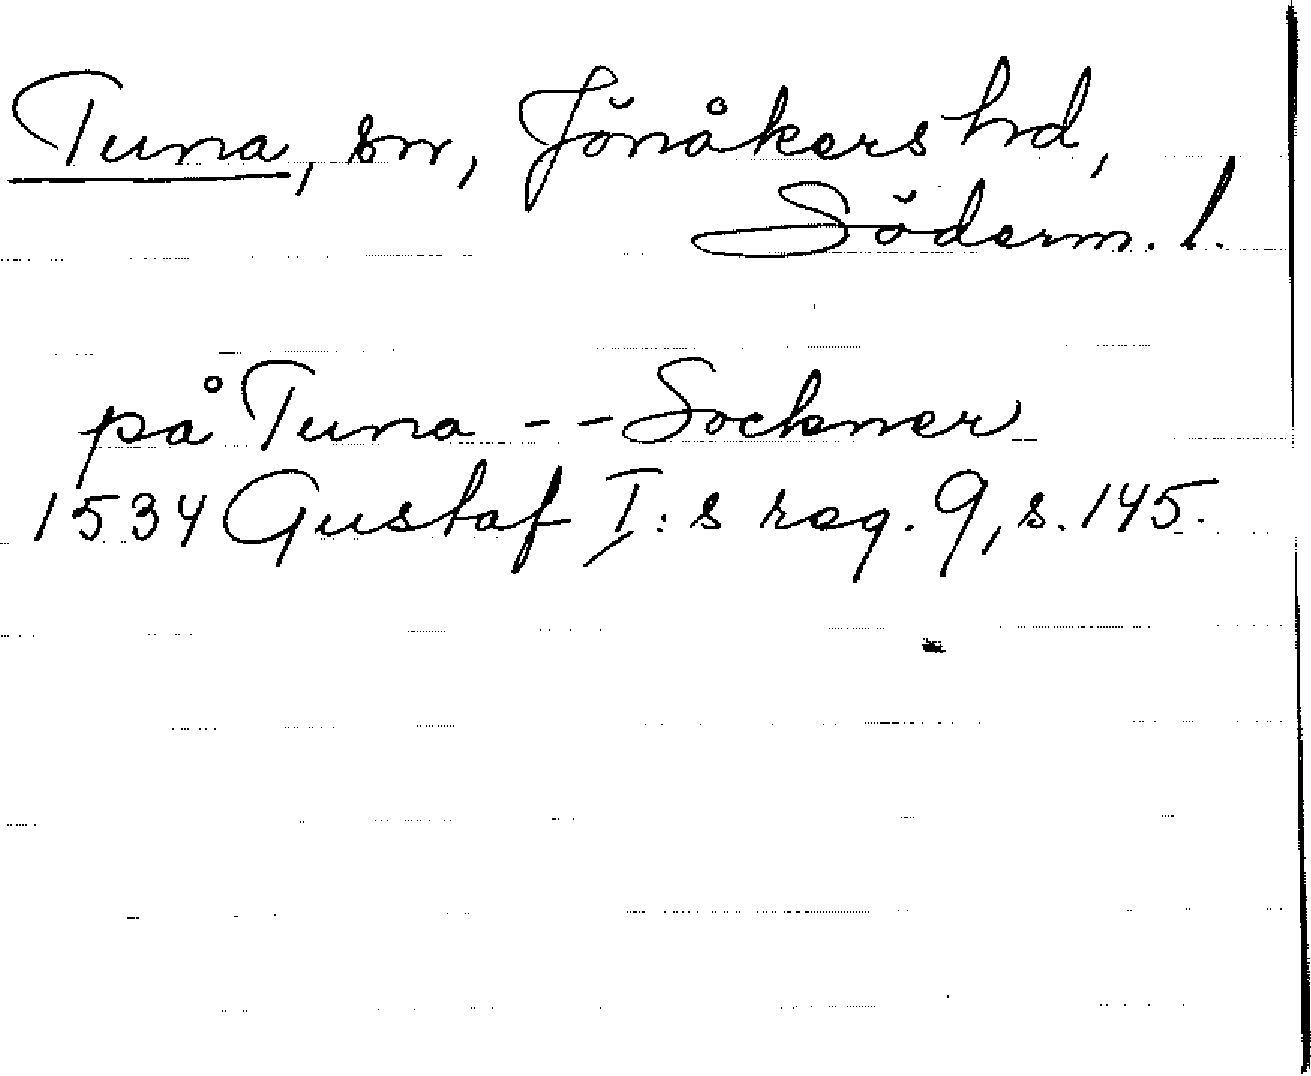 Tuna, sn, Jönåkers hd,
Söderm. l.
på Tuna -- Sockner
1534 Gustaf I:s reg. 9, s. 145.